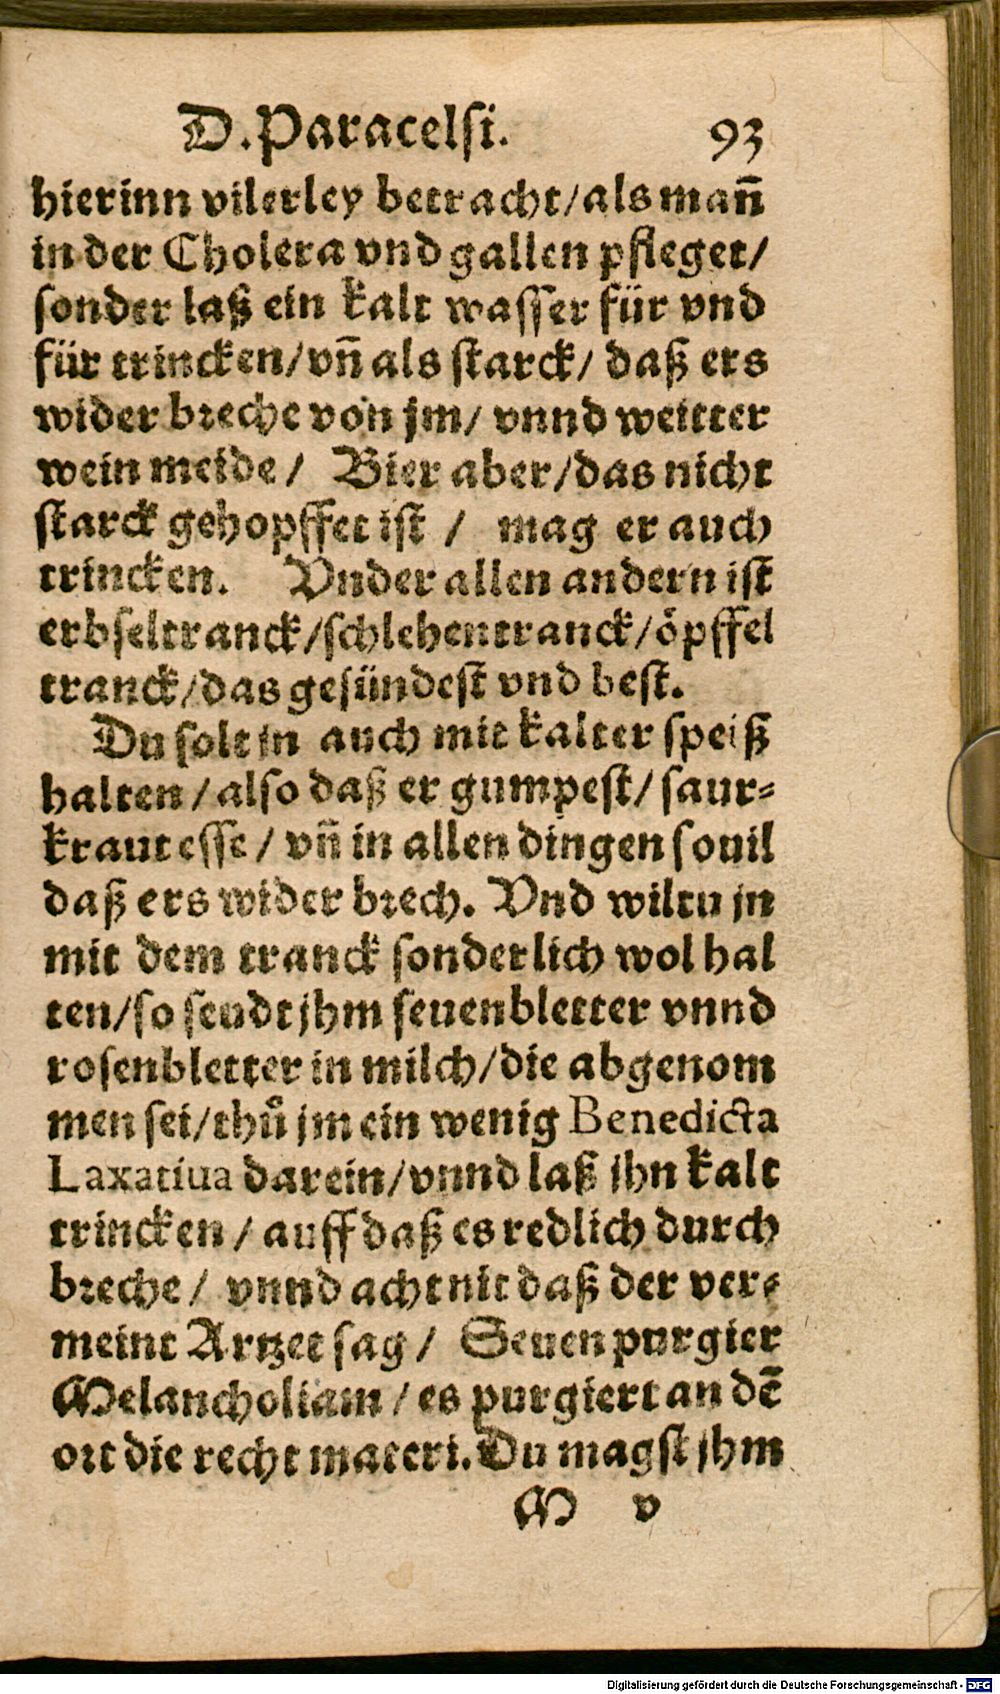 D. Paracelsi. 93
hierinn vilerley betracht/als mañ
in der Cholera vnd gallen pfleget/
sonder laß ein kalt wasser für vnd
für trincken/vñ als starck/ daß ers
wider breche von jm/ vnnd weitter
wein meide/ Bier aber/das nicht
starck gehopffet ist / mag er auch
trincken. Vnder allen andern ist
erbseltranck/schlehentranck/öpffel
tranck/das gesündest vnd best.
Du solt jn auch mit kalter speiß
halten/also daß er gumpest/saur⸗
kraut esse/ vñ in allen dingen souil
daß ers wider brech. Vnd wiltu jn
mit dem tranck sonderlich wol hal
ten/so seudt jhm seuenbletter vnnd
rosenbletter in milch/die abgenom
men sei/thů jm ein wenig Benedicta
Laxatiua darein/vnnd laß jhn kalt
trincken/ auff daß es redlich durch
breche/ vnnd acht nit daß der ver⸗
meint Artzet sag/ Seuen purgier
Melancholiam/es purgiert an dē
ort die recht materi. Du magst jhm
M v
Digitalisierung gefördert durch die Deutsche Forschungsgemeinschaft - DFG